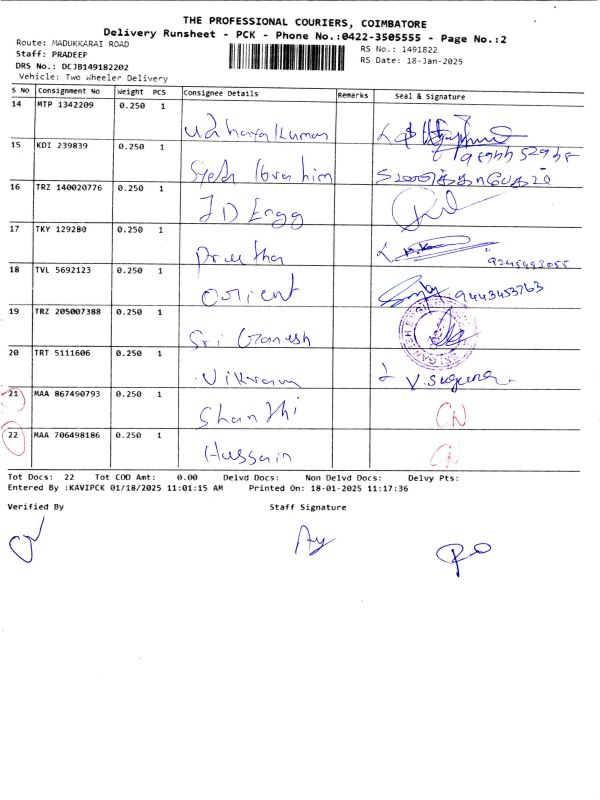 THE PROFESSIONAL COURIERS, COIMBATORE
Delivery Runsheet - PCK - Phone No.:0422-3505555 - Page No.:2
Route: MADUKKARAI ROAD
RS No.: 1491822
Staff: PRADEEP
RS Date: 18-Jan-2025
DRS No.: DCJB149182202
Vehicle: Two Wheeler Delivery
S No Consignment No Weight PCS Consignee Details Remarks Seal & Signature
14 MTP 1342209 0.250 1
15 KDI 239839 0.250 1
Syed Ibrahim
16 TRZ 140020776 0.250 1
J D Engg
17 TKY 129280 0.250 1
Preetha 9245493055
18 TVL 5692123 0.250 1
Orient 9443453763
19 TRZ 205007388 0.250 1
Sri Ganesh
20 TRT 5111606 0.250 1
Vikram V. Suguna
21 MAA 867490793 0.250 1
Shanthi CN
22 MAA 706498186 0.250 1
Hussain CN
Tot Docs: 22 Tot COD Amt: 0.00 Delvd Docs: Non Delvd Docs: Delvy Pts:
Entered By :KAVIPCK 01/18/2025 11:01:15 AM Printed On: 18-01-2025 11:17:36
Verified By Staff Signature